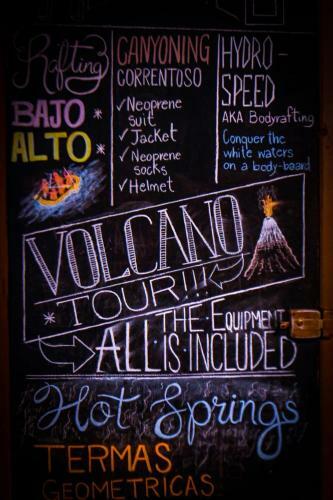 Rafting
BAJO *
ALTO *
CANYONING
CORRENTOSO
✓Neoprene
suit
✓Jacket
✓Neoprene
socks
✓Helmet
HYDRO-
SPEED
AKA Bodyrafting
Conquer the
white waters
on a body-board
VOLCANO
* TOUR!!!
ALL THE EQUIPMENT
IS INCLUDED
Hot Springs
TERMAS
GEOMETRICAS